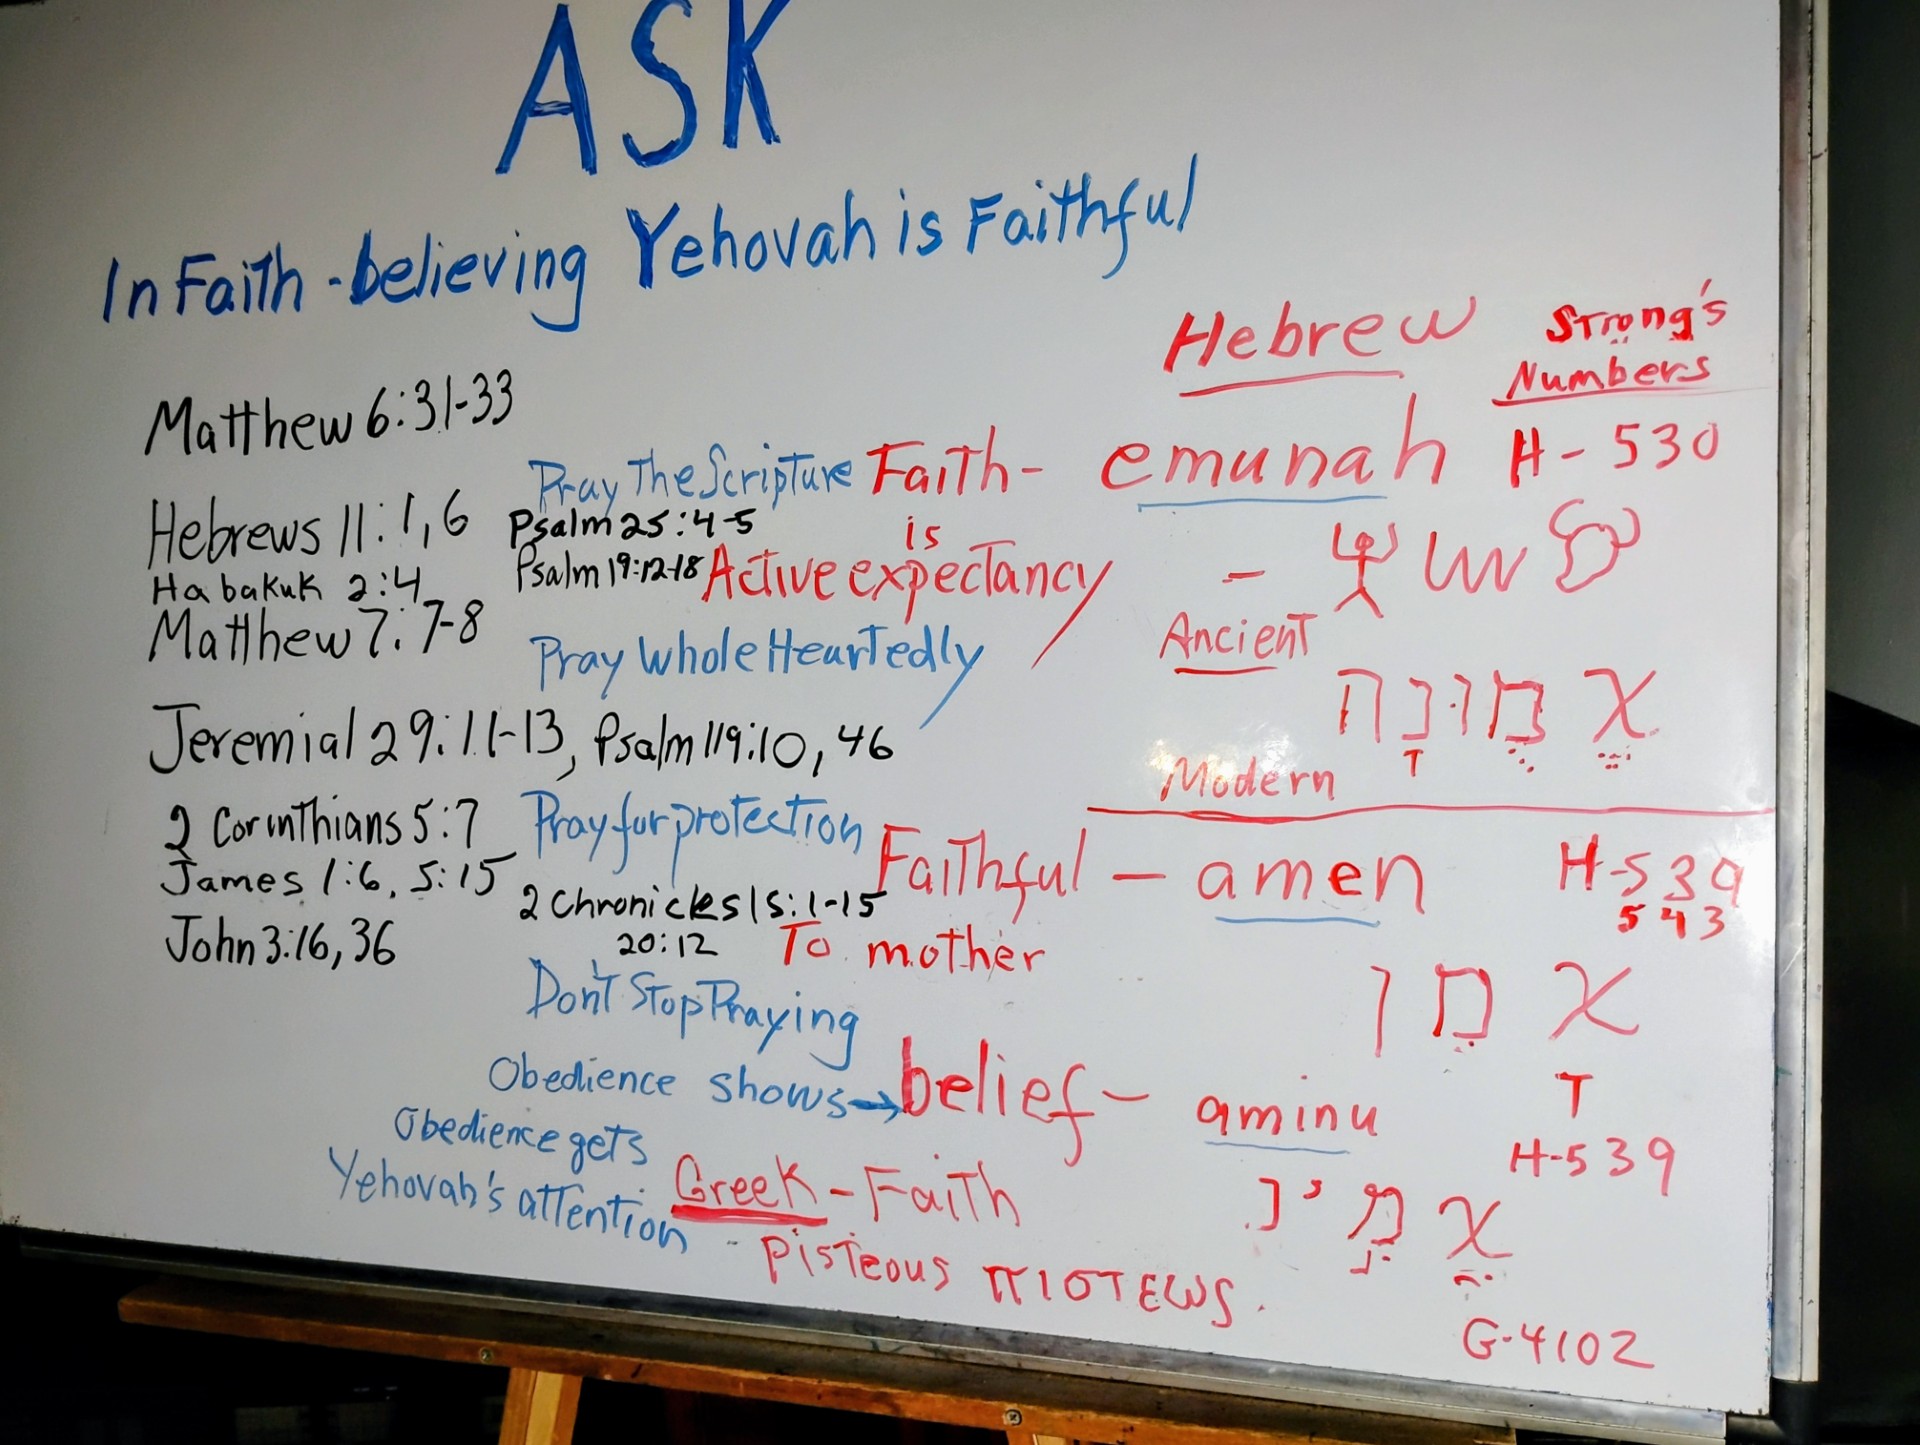 ASK
In Faith - believing Yehovah is Faithful
Matthew 6:31-33
Hebrews 11:1,6
Habakuk 2:4
Matthew 7:7-8
Jeremial 29:11-13, Psalm 119:10, 46
2 Corinthians 5:7
James 1:6, 5:15
John 3:16, 36
Pray The Scripture
Psalm 25:4-5
Psalm 19:12-18
Pray Whole Heartedly
Pray for protection
2 Chronicles 15:1-15
20:12
Don't Stop Praying
Obedience shows →
Obedience gets
Yehovah's attention
Hebrew
Strong's
Numbers
Faith - emunah H-530
is
Active expectancy
Ancient
אֱמוּנָה
Modern
Faithful - amen H-539
543
To mother
אמן
belief - aminu
H-539
Greek - Faith
- Pisteous πιστεως.
G-4102